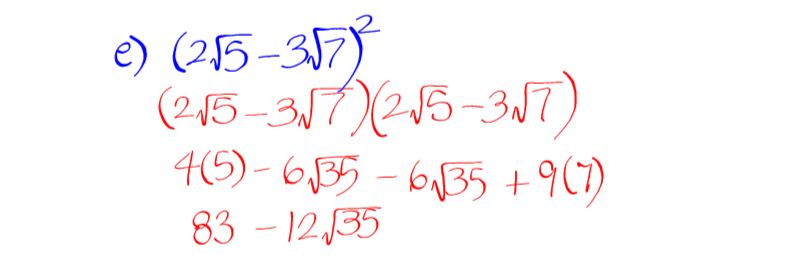 e) (2√5 – 3√7)²
(2√5 – 3√7)(2√5 – 3√7)
4(5) – 6√35 – 6√35 + 9(7)
83 – 12√35